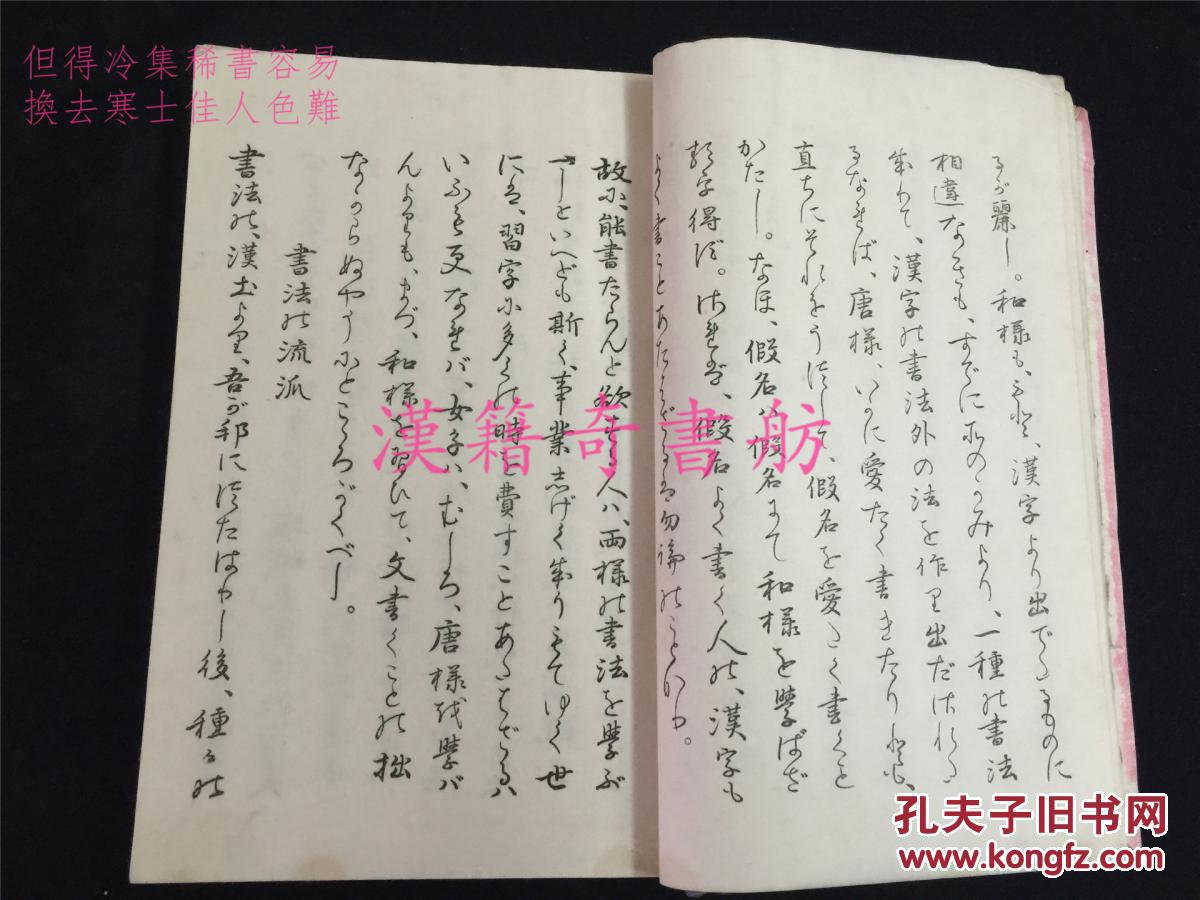 但得冷集稀書容易
換去寒士佳人色難
るが麗し。和様も、もと、漢字より出でゝるものに
相違なきも、すでにそのかみより、一種の書法
ありて、漢字の書法外の法を作り出だされゝ
るなれば、唐様、いかに愛たく書きたりとも、
直ちにそれをうつして、假名を愛たく書くこと
かたし。なほ、假名は、假名にて和様を學ばざ
れば得ず。されば、假名よく書く人の、漢字も
よく書くことあたはざるは勿論のことなり。
故に、能書たらんと欲する人ハ、両様の書法を學ぶ
べしといへども斯く、事業志げくなりもてゆく世
には、習字に多くの時を費すことあたはざるハ
いふも更なれバ、女子ハ、むしろ、唐様を學バ
んよりも、まづ、和様を習ひて、文書くことの拙
なからぬやうにとこゝろがくべし。
書法の流派
書法の、漢土より、吾が邦につたはりし後、種々の
漢籍奇書舫
孔夫子旧书网
www.kongfz.com